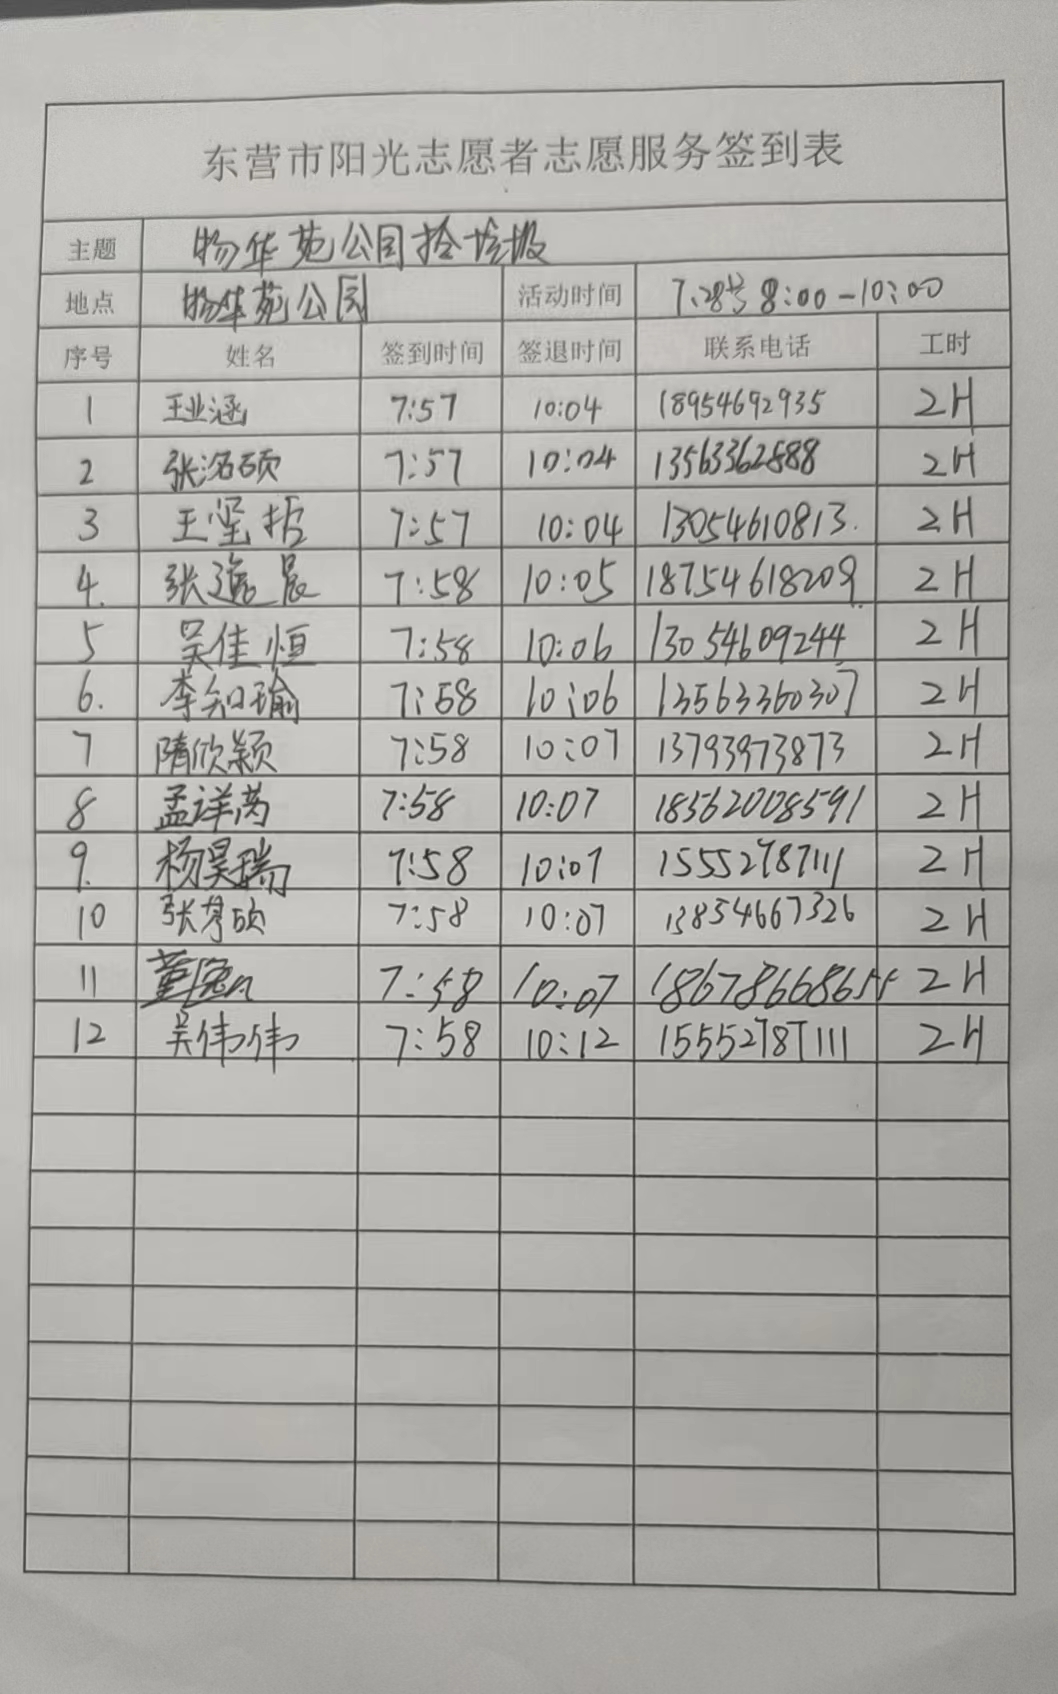 东营市阳光志愿者志愿服务签到表
主题 物华苑公园捡垃圾
地点 物华苑公园 活动时间 7.28号 8:00-10:00
序号 姓名 签到时间 签退时间 联系电话 工时
1 王业涵 7:57 10:04 18954692935 2H
2 张洺硕 7:57 10:04 13563362888 2H
3 王坚 7:57 10:04 13054610813. 2H
4. 张 晨 7:58 10:05 18754618209 2H
5 吴佳恒 7:58 10:06 13054609244 2H
6. 李知瑜 7:58 10:06 13563360307 2H
7 隋欣颖 7:58 10:07 13793973873 2H
8 孟详 7:58 10:07 18562008591 2H
9. 杨昊瑞 7:58 10:07 15552787111 2H
10 张 硕 7:58 10:07 13854667326 2H
11 董 7:58 10:07 18678668655 2H
12 吴伟伟 7:58 10:12 15552787111 2H